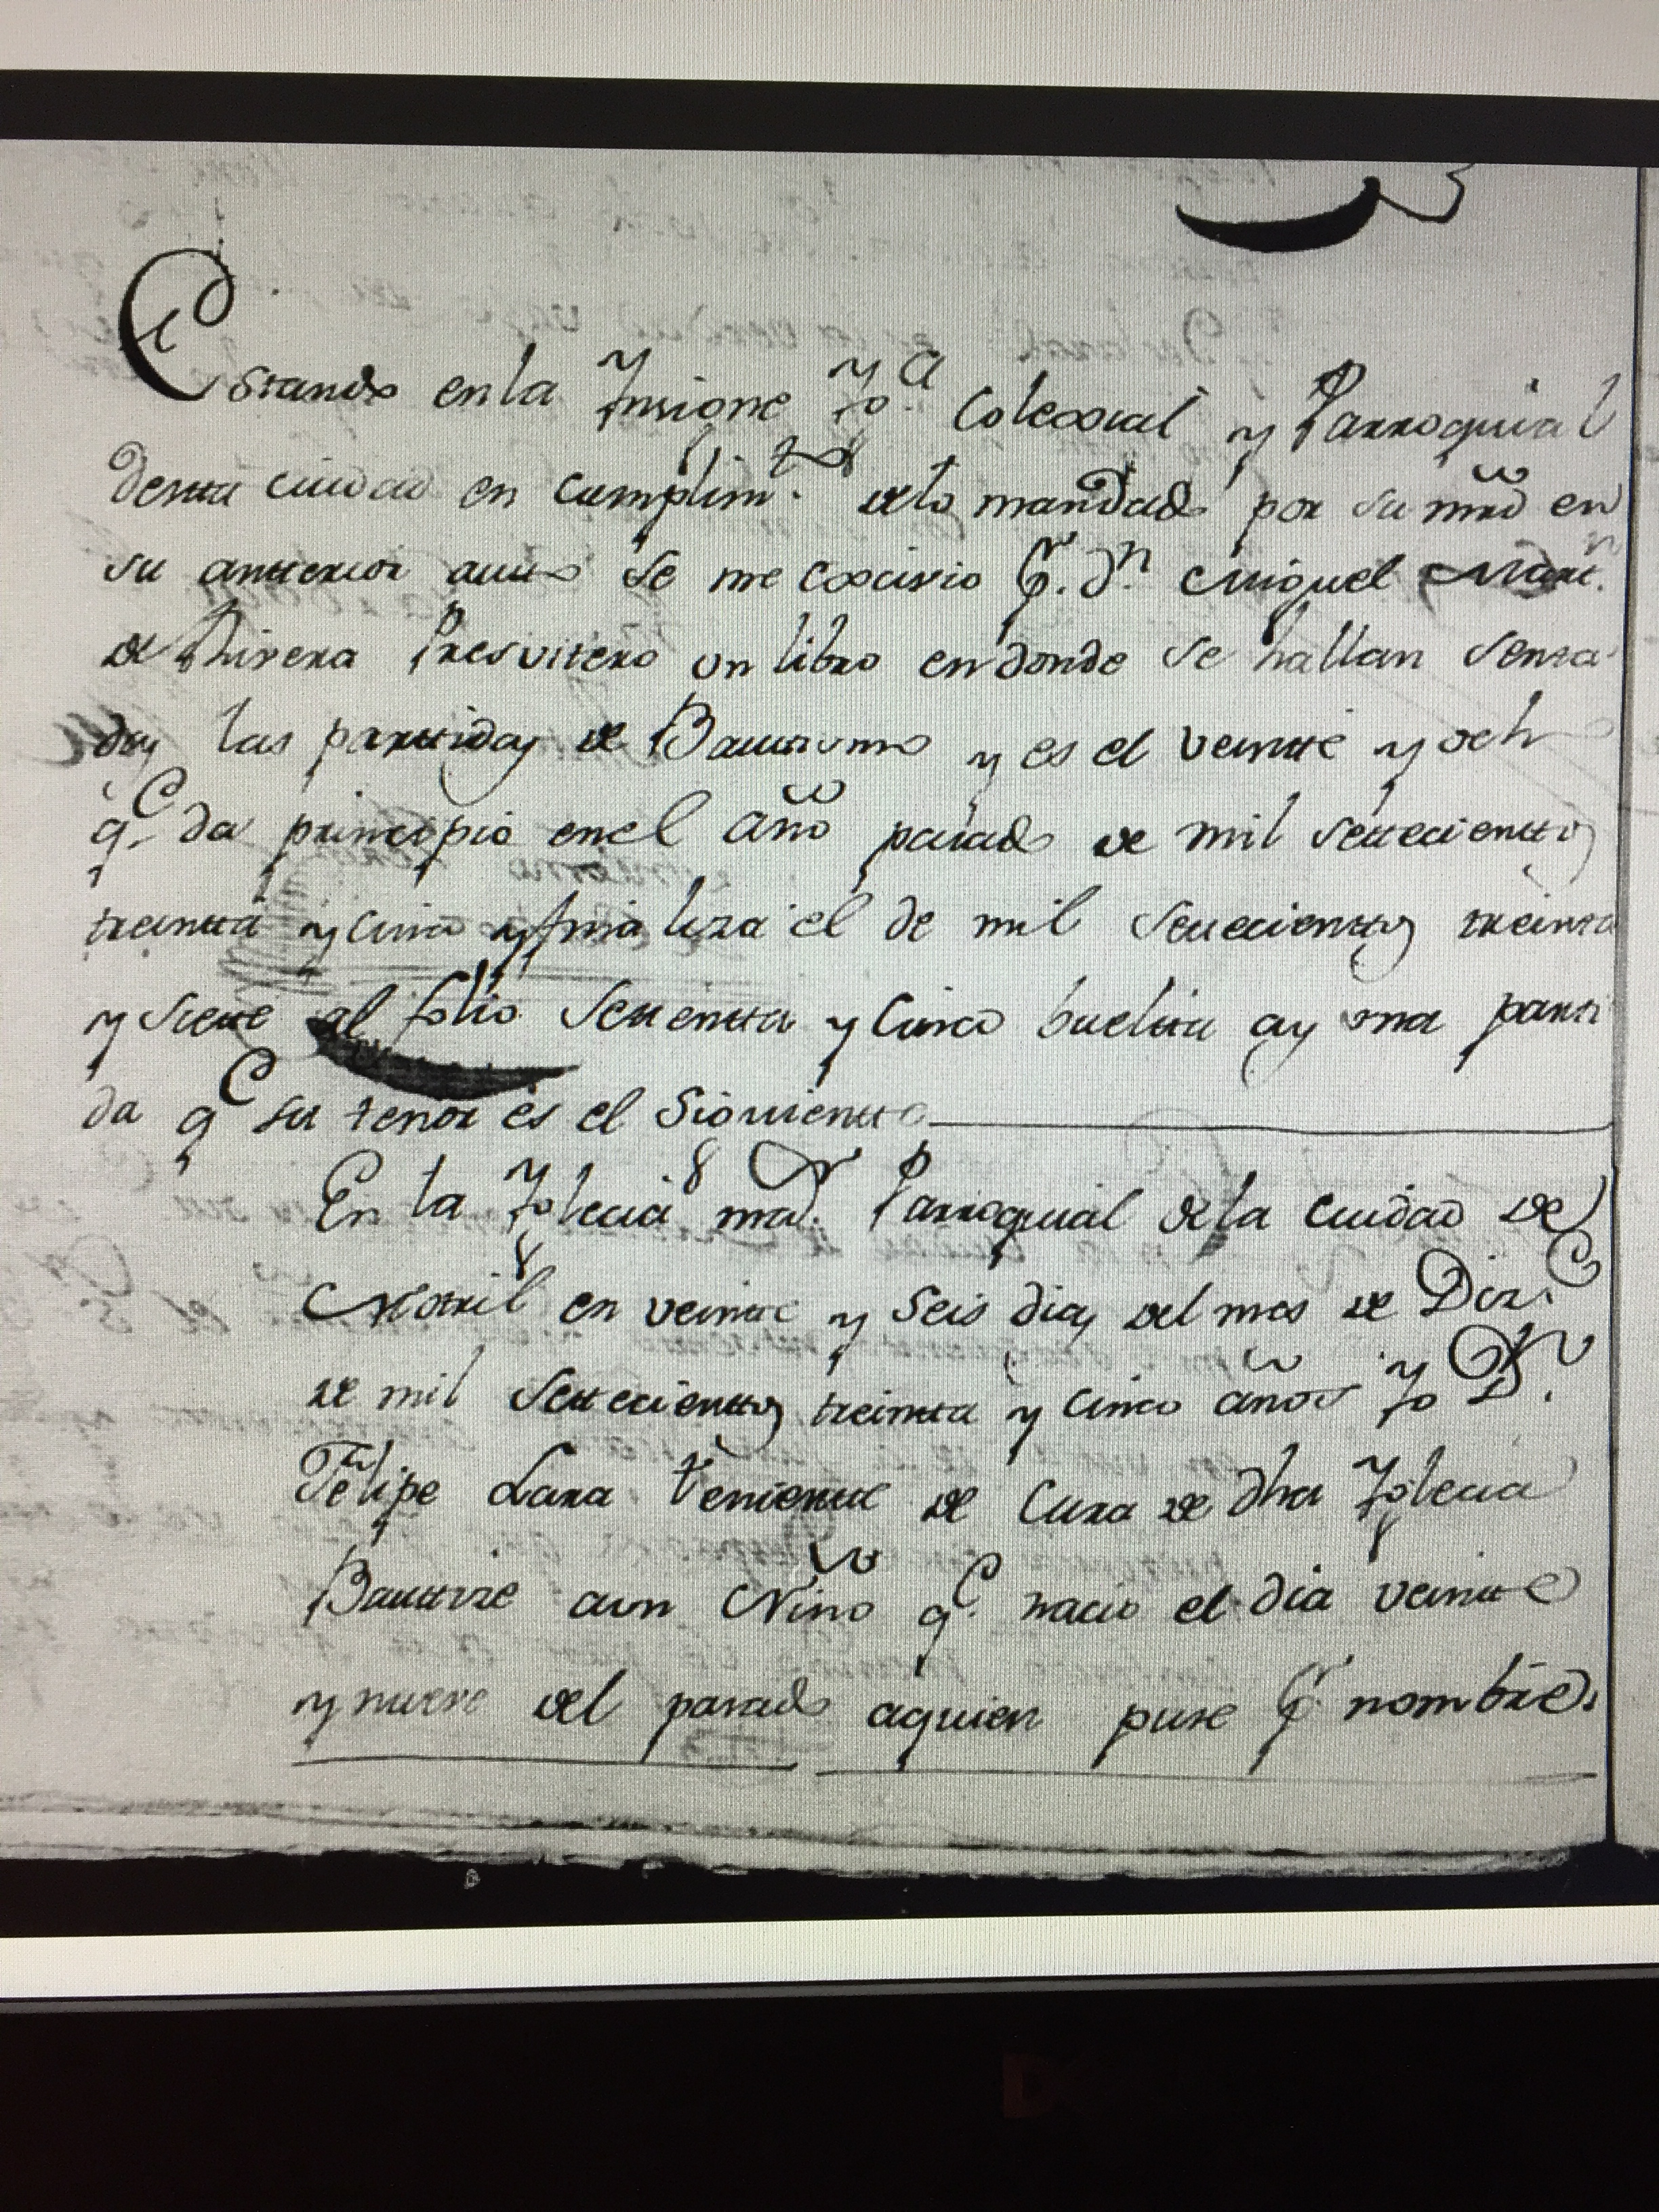 Estando en la Ynsigne Yg.ª Colexial y Parroquial
desta ciudad en cumplim.to de lo mandado por su mrd en
su anterior auto se me exsivio p.r d.n Miguel Mart.n
de Rivera Presvitero un libro en donde se hallan senta
das las partidas de Bautismo y es el veinte y ocho
q.e da principio en el año pasado de mil settecientos
treinta y cinco y finaliza el de mil settecientos treinta
y siete al folio settenta y cinco buelta ay una parti
da q.e su tenor es el siguiente
En la Yglecia ma.r Parroquial de la ciudad de
Motril en veinte y seis dias del mes de Diz.e
de mil settecientos treinta y cinco años yo D.n
Felipe Lara teniente de Cura de dha Yglecia
Bautize a un Niño q.e nacio el dia veinte
y nueve del pasado a quien puse p.r nombre